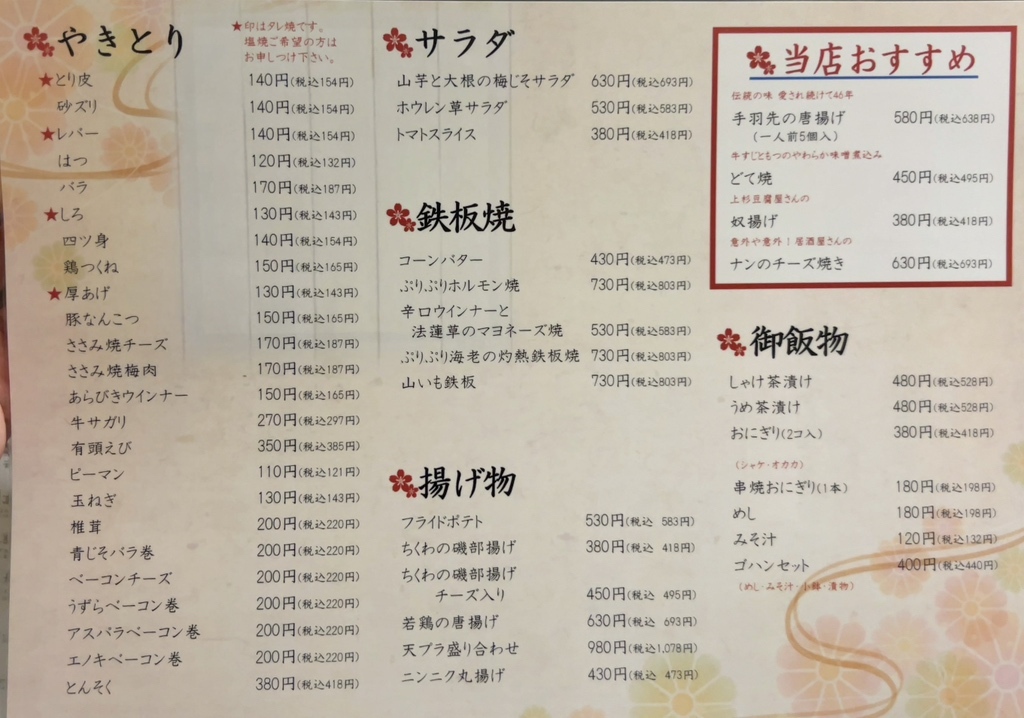 やきとり
★印はタレ焼です。
塩焼ご希望の方は
お申しつけ下さい。
★とり皮 140円(税込154円)
砂ズリ 140円(税込154円)
★レバー 140円(税込154円)
はつ 120円(税込132円)
バラ 170円(税込187円)
★しろ 130円(税込143円)
四ツ身 140円(税込154円)
鶏つくね 150円(税込165円)
★厚あげ 130円(税込143円)
豚なんこつ 150円(税込165円)
ささみ焼チーズ 170円(税込187円)
ささみ焼梅肉 170円(税込187円)
あらびきウインナー 150円(税込165円)
牛サガリ 270円(税込297円)
有頭えび 350円(税込385円)
ピーマン 110円(税込121円)
玉ねぎ 130円(税込143円)
椎茸 200円(税込220円)
青じそバラ巻 200円(税込220円)
ベーコンチーズ 200円(税込220円)
うずらベーコン巻 200円(税込220円)
アスパラベーコン巻 200円(税込220円)
エノキベーコン巻 200円(税込220円)
とんそく 380円(税込418円)
サラダ
山芋と大根の梅じそサラダ 630円(税込693円)
ホウレン草サラダ 530円(税込583円)
トマトスライス 380円(税込418円)
鉄板焼
コーンバター 430円(税込473円)
ぷりぷりホルモン焼 730円(税込803円)
辛口ウインナーと
法蓮草のマヨネーズ焼 530円(税込583円)
ぷりぷり海老の灼熱鉄板焼 730円(税込803円)
山いも鉄板 730円(税込803円)
揚げ物
フライドポテト 530円(税込 583円)
ちくわの磯部揚げ 380円(税込 418円)
ちくわの磯部揚げ
チーズ入り 450円(税込 495円)
若鶏の唐揚げ 630円(税込 693円)
天プラ盛り合わせ 980円(税込1,078円)
ニンニク丸揚げ 430円(税込 473円)
当店おすすめ
伝統の味 愛され続けて46年
手羽先の唐揚げ 580円(税込638円)
(一人前5個入)
牛すじともつのやわらか味噌煮込み
どて焼 450円(税込495円)
上杉豆腐屋さんの
奴揚げ 380円(税込418円)
意外や意外!居酒屋さんの
ナンのチーズ焼き 630円(税込693円)
御飯物
しゃけ茶漬け 480円(税込528円)
うめ茶漬け 480円(税込528円)
おにぎり(2コ入) 380円(税込418円)
(シャケ・オカカ)
串焼おにぎり(1本) 180円(税込198円)
めし 180円(税込198円)
みそ汁 120円(税込132円)
ゴハンセット 400円(税込440円)
(めし・みそ汁・小鉢・漬物)